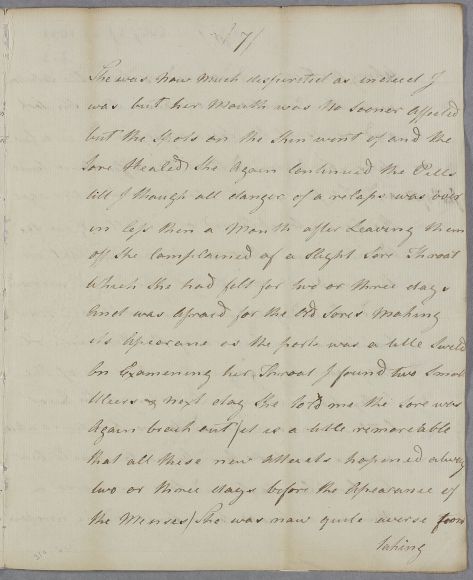 7/
She was now much despirited as indeed I
was but her Mouth was No sooner Affected
but the Spots on the Skin went of and the
Sore Healed She Again Continued the Pills
till I though all danger of a relaps was over
in less then a Month after Leaving them
off She Complained of a Slight Sore Throat
Which She had felt for two or three days
And was Afraid for the Old Sores Making
its Apearane as the parts was a little Sweld
On Examening her Throat I found two Small
Ulcers & next day She told me the Sore was
Again broch out/ it is a little remarcable
that all these new Attacks hapened alway
two or three days before the Apearance of
the Menses/ She was now quite averse from
taking